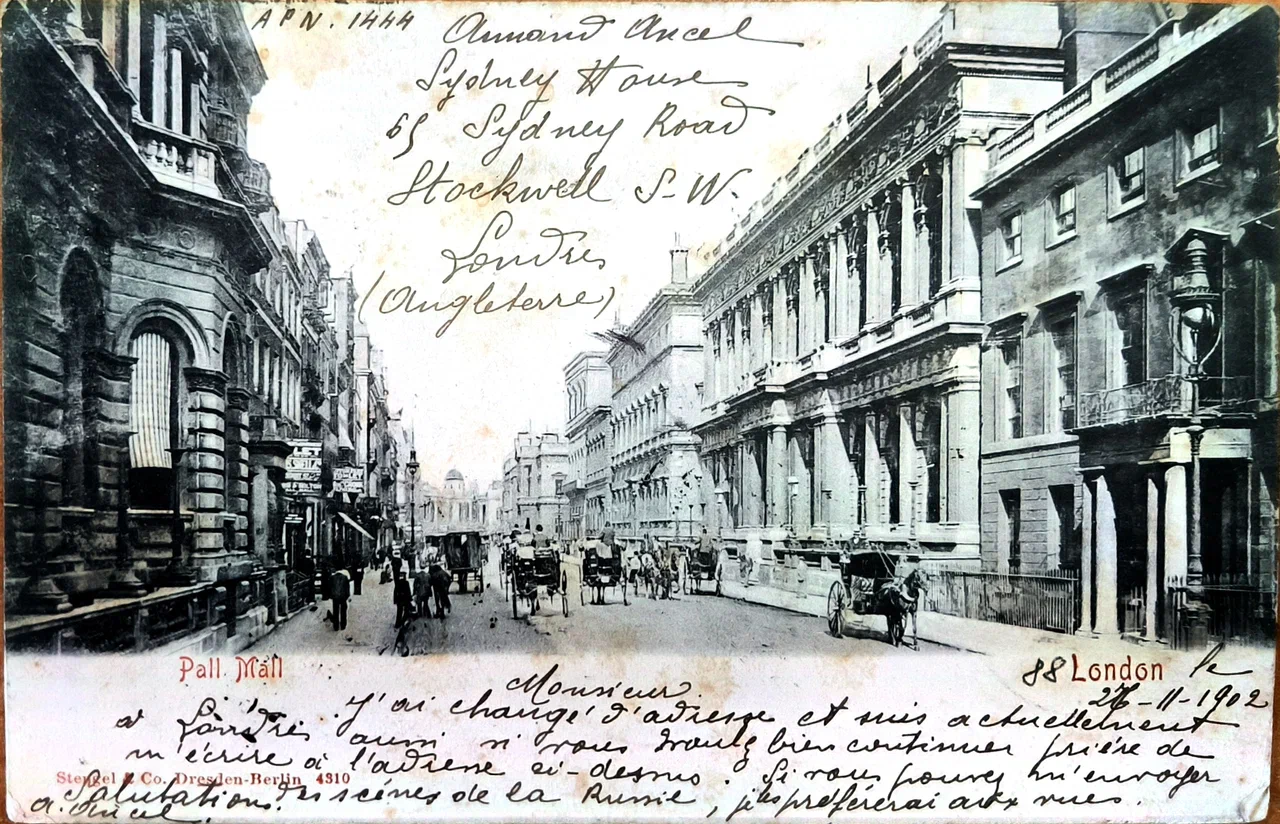 APN. 1444
Armand Ancel
Sydney House
65 Sydney Road
Stockwell S.W.
Londres
(Angleterre)
Pall Mall
88 London le
26-11-1902
Monsieur.
J'ai changé d'adresse et suis actuellement
à Londres aussi si vous voulez bien continuer prière de
m'écrire à l'adresse ci-dessus. Si vous pouvez m'envoyer
Stengel & Co. Dresden-Berlin 4310
des scènes de la Russie, je les préférerai aux vues.
Salutations.
A. Ancel.